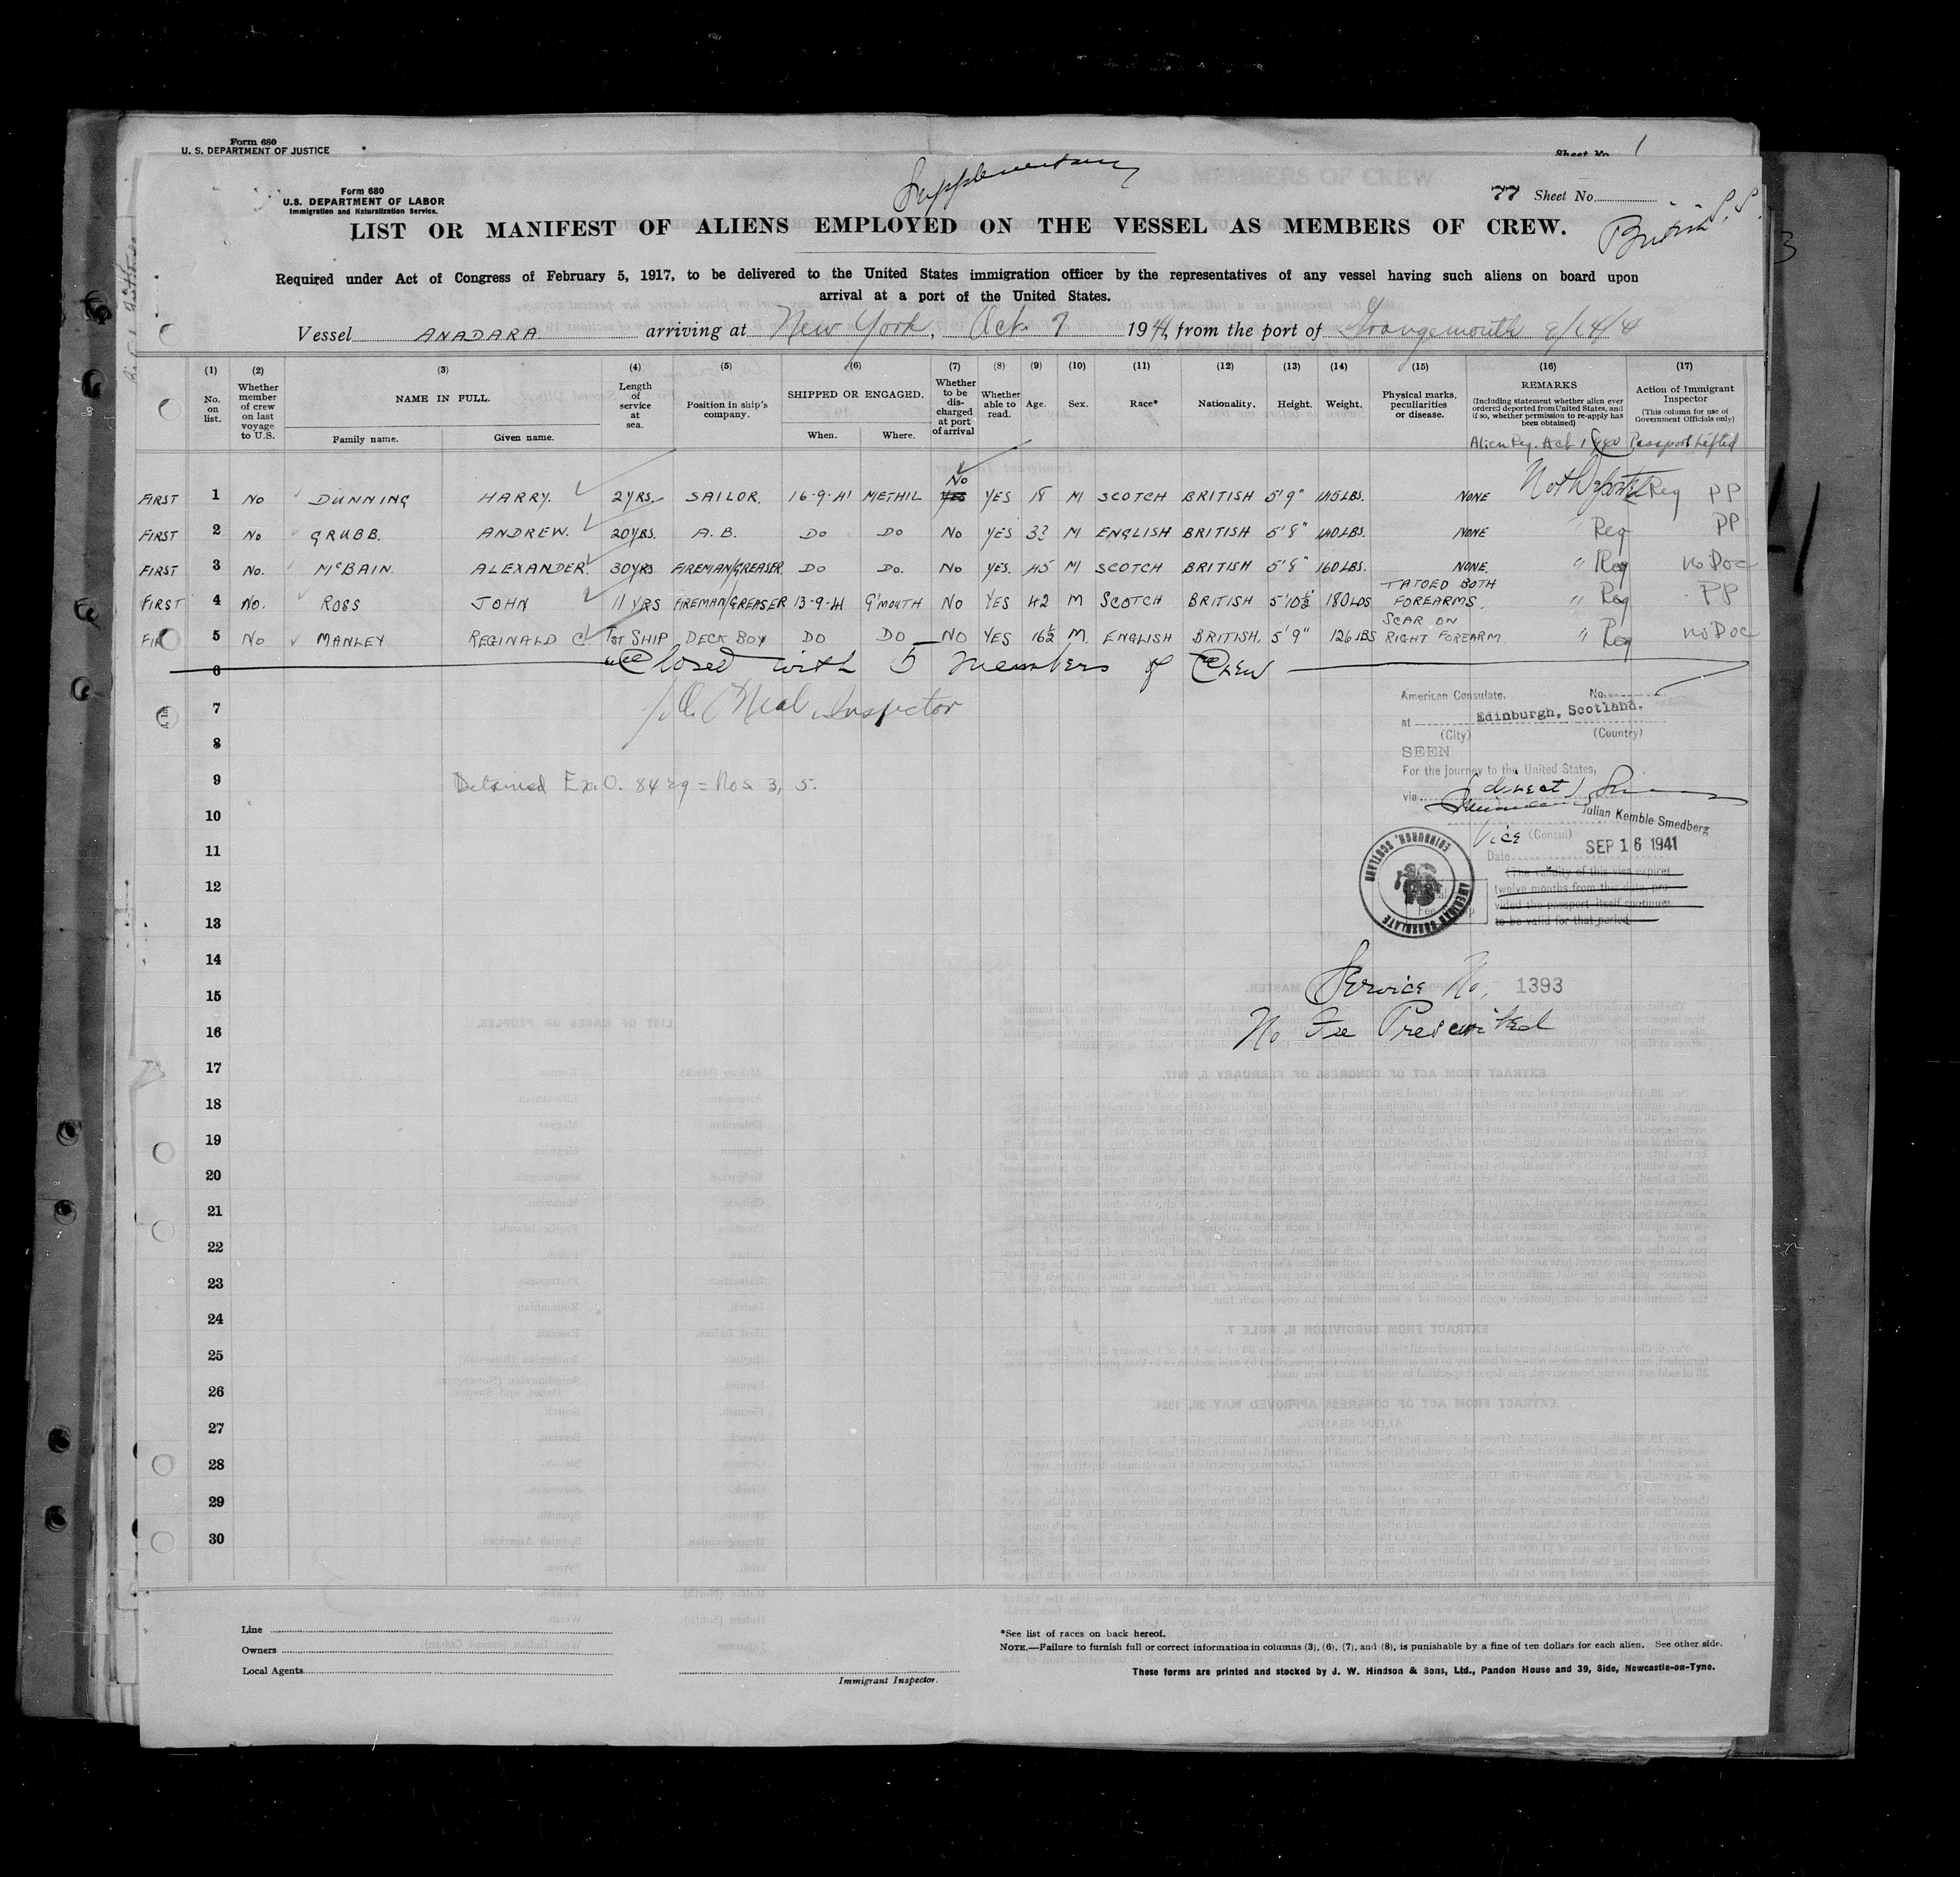 Form 680
U. S. DEPARTMENT OF JUSTICE
Sheet No. 1
Supplementary
Form 680
U.S. DEPARTMENT OF LABOR
Immigration and Naturalization Service.
77 Sheet No.
British S.S.
LIST OR MANIFEST OF ALIENS EMPLOYED ON THE VESSEL AS MEMBERS OF CREW.
Required under Act of Congress of February 5, 1917, to be delivered to the United States immigration officer by the representatives of any vessel having such aliens on board upon
arrival at a port of the United States.
Vessel ANADARA arriving at New York, Oct. 7 1941, from the port of Grangemouth
(1) (2) (3) (4) (5) (6) (7) (8) (9) (10) (11) (12) (13) (14) (15) (16) (17)
No. on list. Whether member of crew on last voyage to U.S. NAME IN FULL. Family name. Given name. Length of service at sea. Position in ship's company. SHIPPED OR ENGAGED. When. Where. Whether to be discharged at port of arrival Whether able to read. Age. Sex. Race* Nationality. Height. Weight. Physical marks, peculiarities or disease. REMARKS (Including statement whether alien ever ordered deported from United States, and if so, whether permission to re-apply has been obtained) Action of Immigrant Inspector (This column for use of Government Officials only)
Alien Reg. Act 1940 Passport Lifted
FIRST 1 NO DUNNING HARRY. 2 YRS. SAILOR. 16-9-41 METHIL YES No YES 18 M SCOTCH BRITISH 5'9" 145 LBS. NONE Not Deported Reg PP
FIRST 2 NO GRUBB. ANDREW. 20 YRS. A.B. DO DO NO YES 33 M ENGLISH BRITISH 5'8" 140 LBS. NONE " Reg PP
FIRST 3 NO. McBAIN. ALEXANDER. 30 YRS FIREMAN/GREASER DO DO. NO YES. 45 M SCOTCH BRITISH 5'8" 160 LBS. NONE. " Reg no Doc
FIRST 4 NO. ROSS JOHN 11 YRS FIREMAN/GREASER 13-9-41 G'MOUTH NO YES 42 M SCOTCH BRITISH 5'10½ 180 LBS TATOED BOTH FOREARMS. " Reg PP
FIR 5 NO MANLEY REGINALD C. 1ST SHIP DECK BOY DO DO NO YES 16½ M. ENGLISH BRITISH. 5'9" 126 LBS SCAR ON RIGHT FOREARM. " Reg no Doc
6 Closed with 5 members of Crew
7 Inspector
8
9 Detained Ex.O. 8429 = Nos. 3, 5.
10
11
12
13
14
15
16
17
18
19
20
21
22
23
24
25
26
27
28
29
30
American Consulate. No.
at Edinburgh, Scotland.
(City) (Country)
SEEN
For the journey to the United States,
via (direct)
Julian Kemble Smedberg
Vice (Consul)
Date SEP 16 1941
(The validity of this visa expires
twelve months from this date, pro-
vided the passport itself continues
to be valid for that period.
AMERICAN CONSULATE
EDINBURGH, SCOTLAND
Service No. 1393
No Fee Prescribed
Line
Owners
Local Agents
Immigrant Inspector.
*See list of races on back hereof.
NOTE.—Failure to furnish full or correct information in columns (3), (6), (7), and (8), is punishable by a fine of ten dollars for each alien. See other side.
These forms are printed and stocked by J. W. Hindson & Sons, Ltd., Pandon House and 39, Side, Newcastle-on-Tyne.